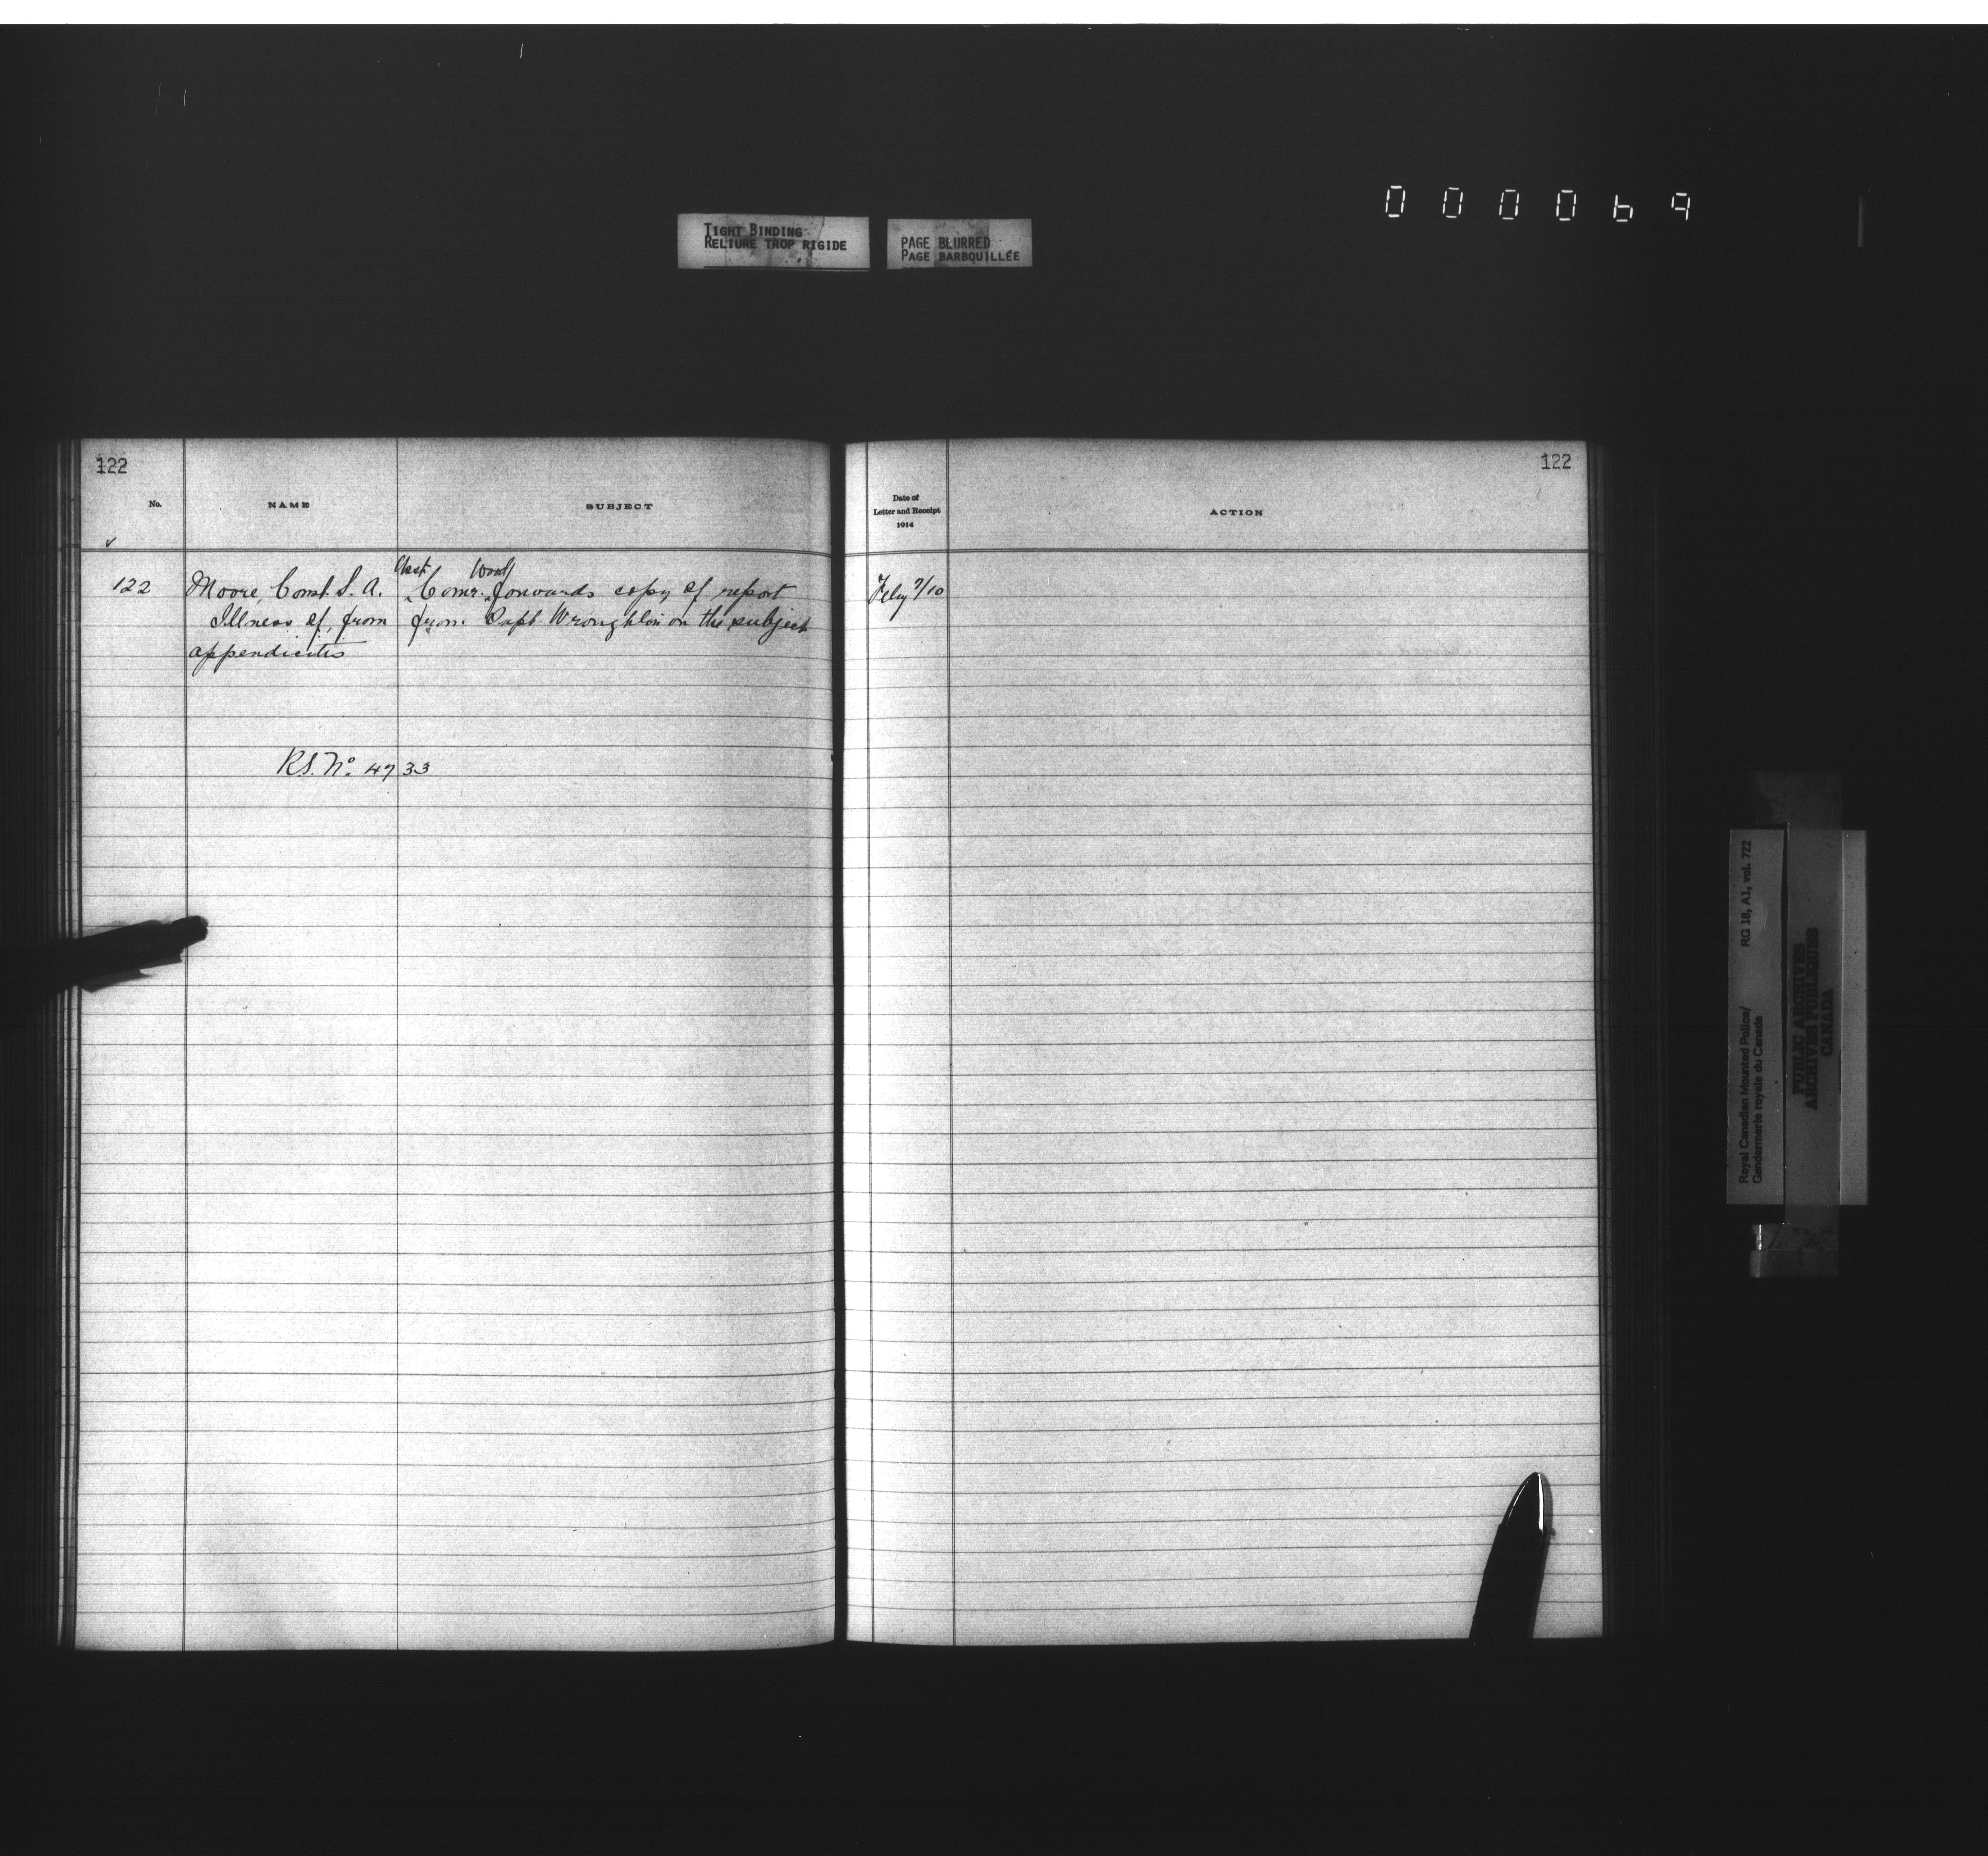 000069
TIGHT BINDING
RELIURE TROP RIGIDE
PAGE BLURRED
PAGE BARBOUILLÉE
122
No.
NAME
SUBJECT
Asst. Wood
122 Moore, Const. S. A. Comr. forwards copy of report
Illness of, from from Supt. Wroughton on the subject
appendicitis
R.S. No. 4733
122
Date of
Letter and Receipt
1914
ACTION
Feby 7/10
Royal Canadian Mounted Police/
Gendarmerie royale du Canada
RG 18, A1, vol. 722
PUBLIC ARCHIVES
ARCHIVES PUBLIQUES
CANADA